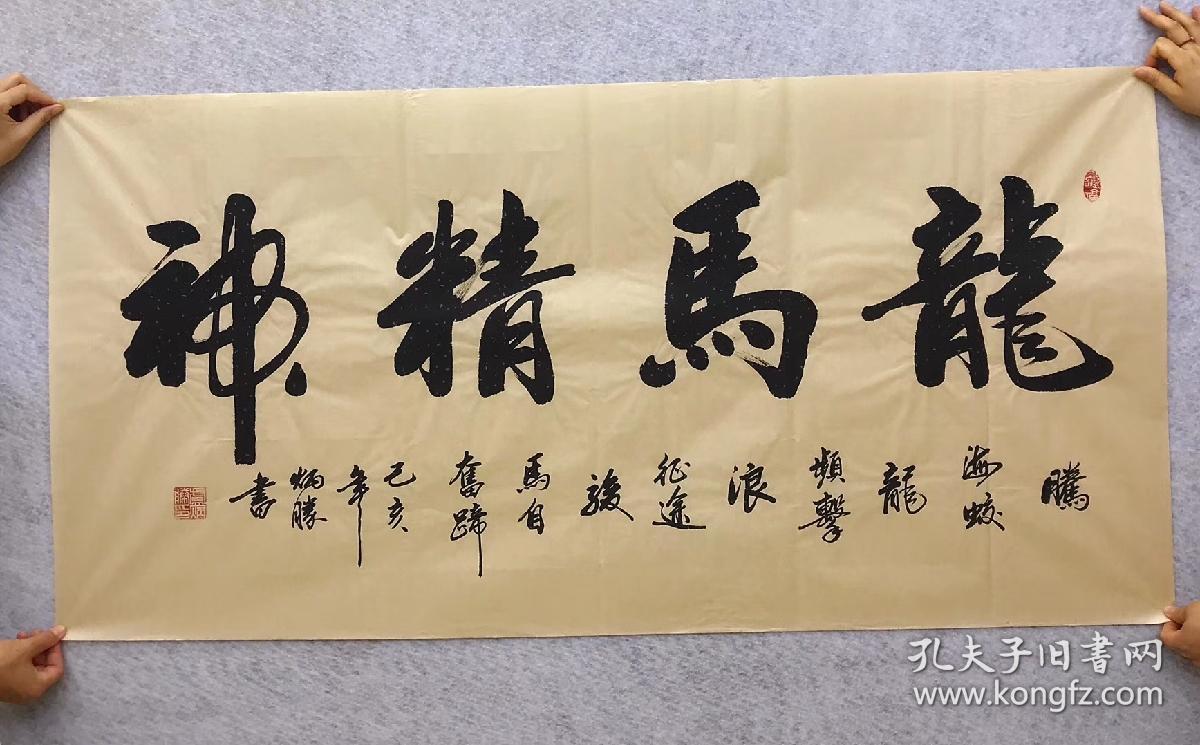 龍馬精神
騰海蛟龍頻擊浪征途駿馬自奮蹄己亥年炳勝書
孔夫子旧書网
www.kongfz.com